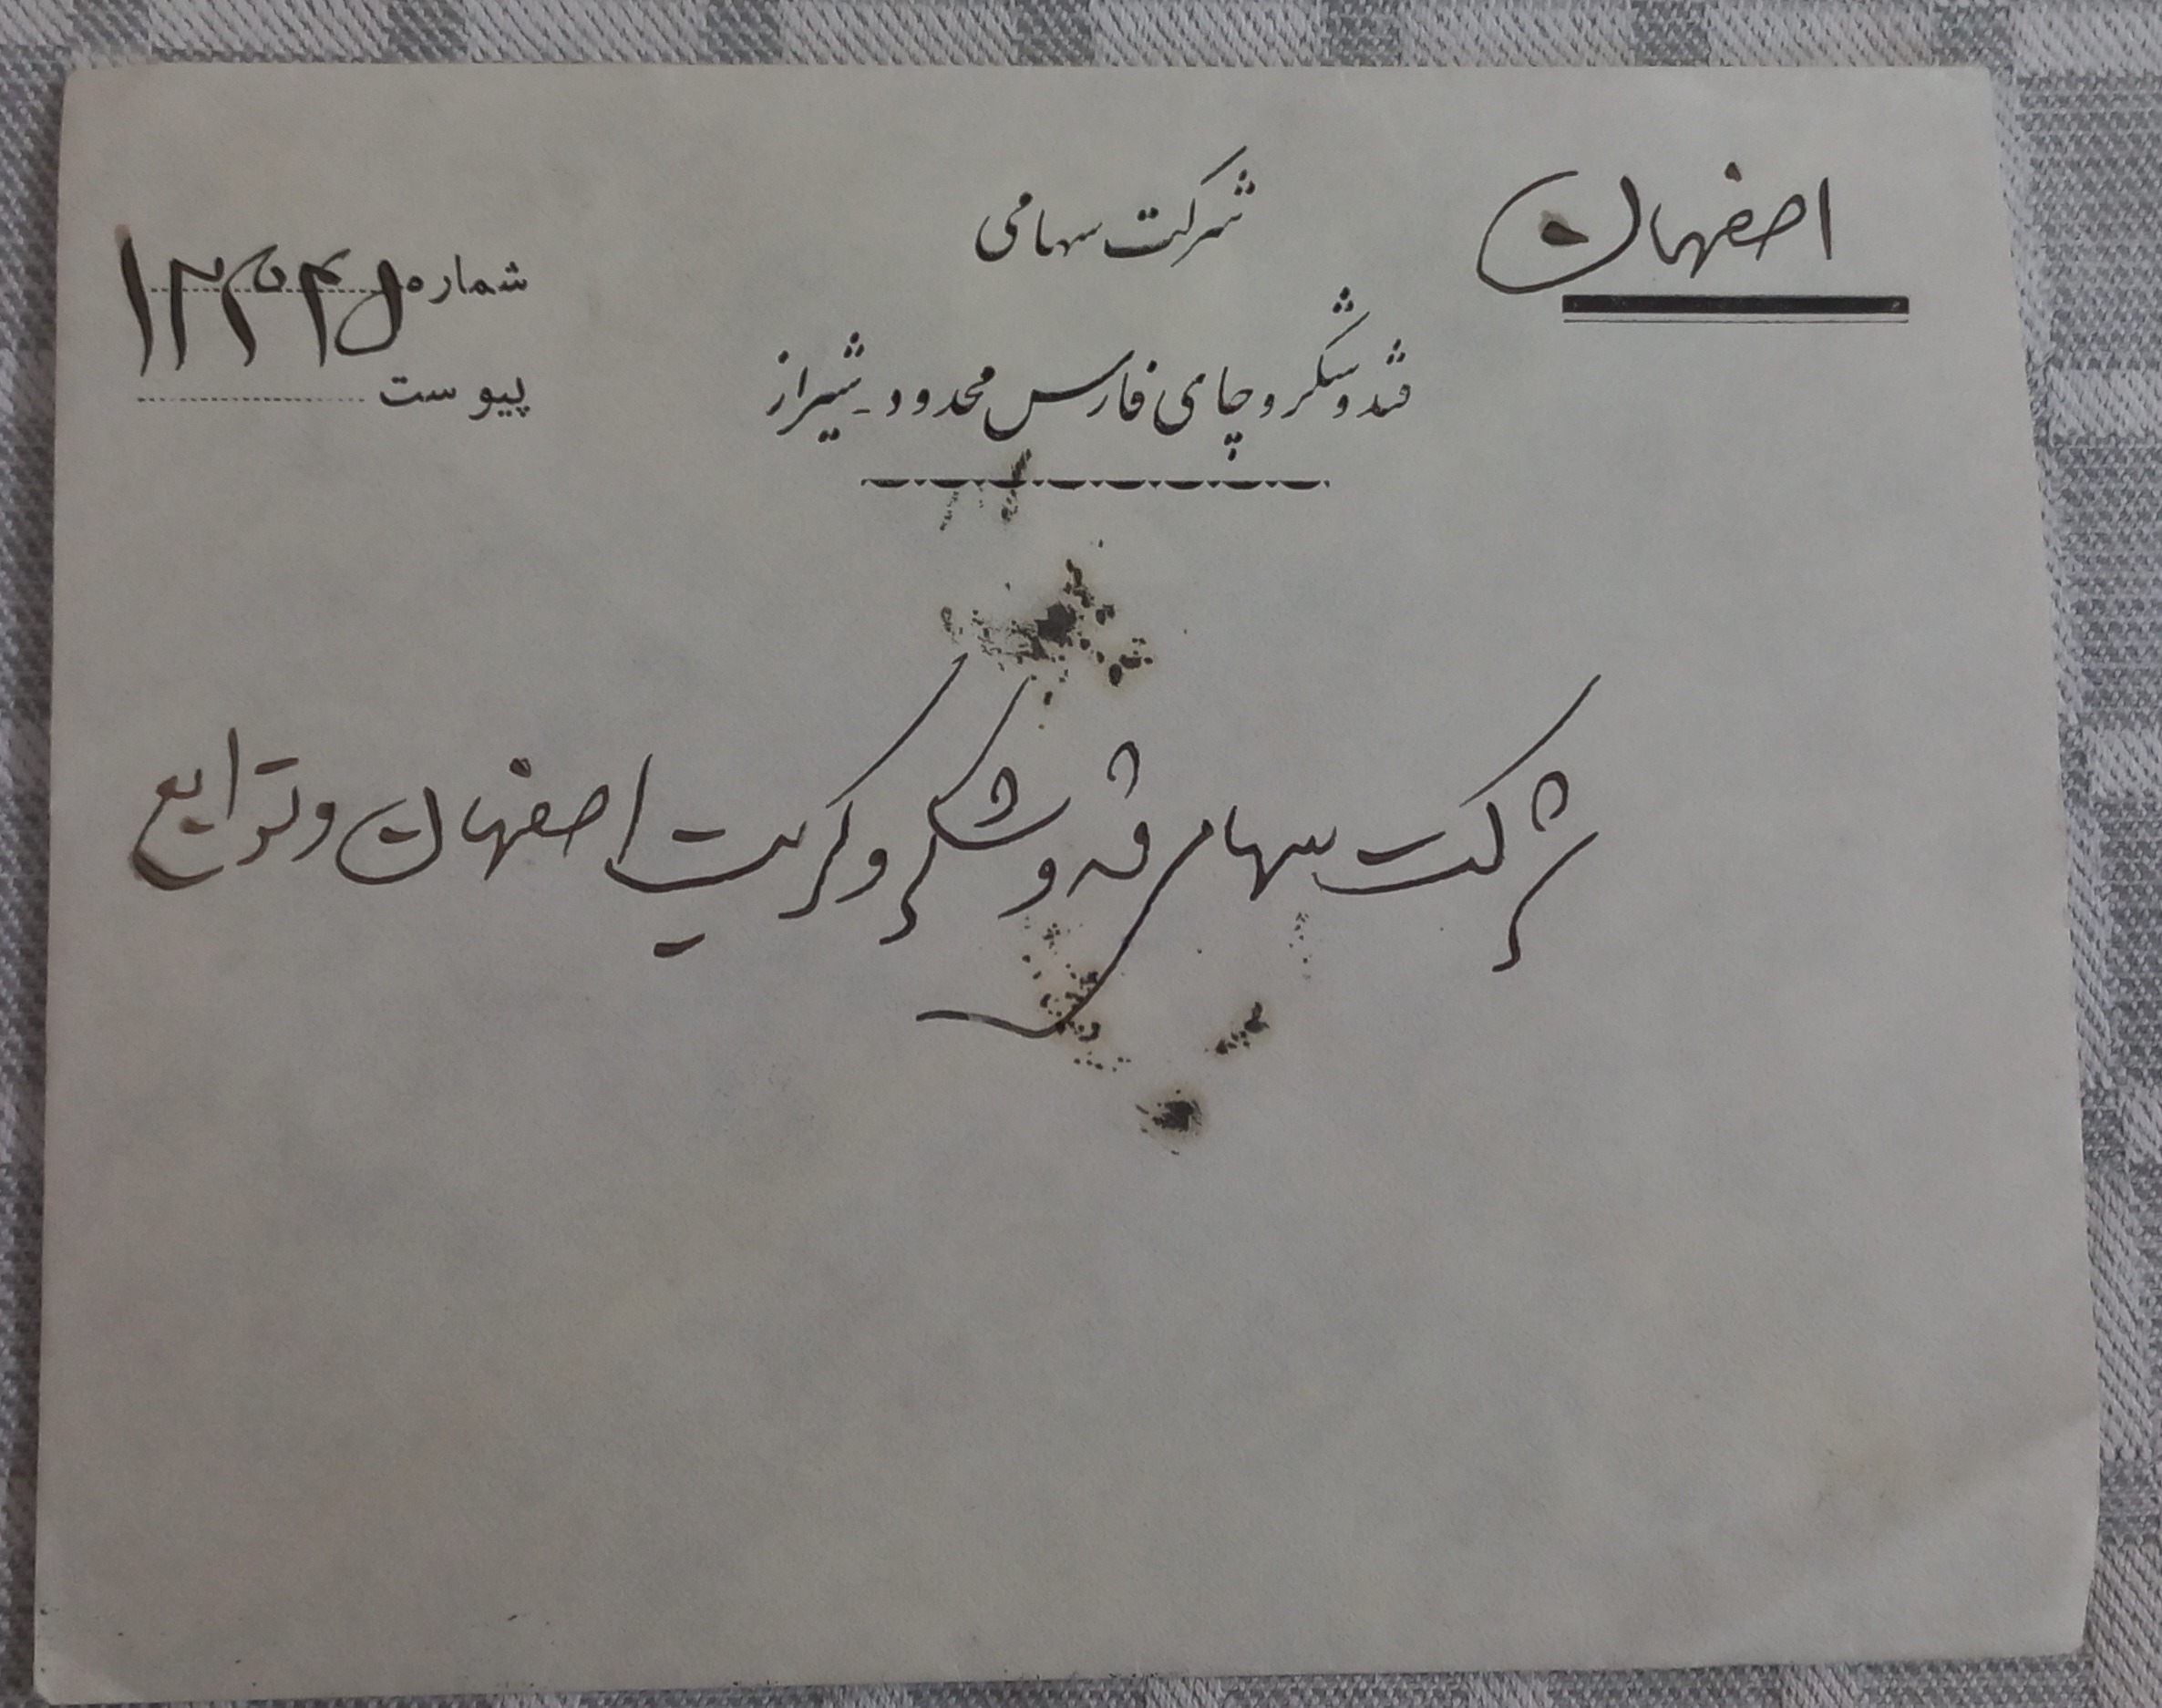 اصفهان
شرکت سهامی
قند و شکر و چای فارس محدود - شیراز
شماره
پیوست
شرکت سهامی قند و شکر و کبریت اصفهان و توابع